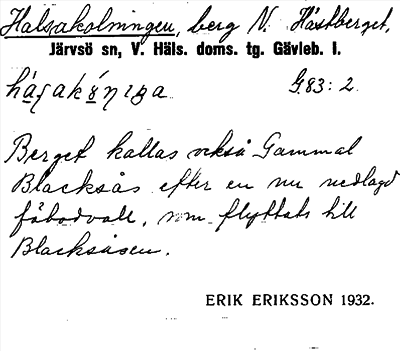 Halsakolningen, berg N. Hästberget,
Järvsö sn, V. Häls. doms. tg. Gävleb. l.
G83: 2.
Berget kallas också Gammal
Blacksås efter en nu nedlagd
fäbodvall, som flyttats till
Blacksåsen.
ERIK ERIKSSON 1932.